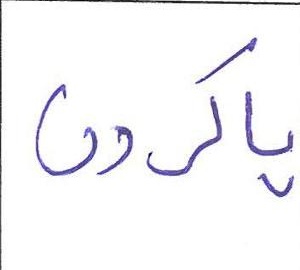 پاکردن